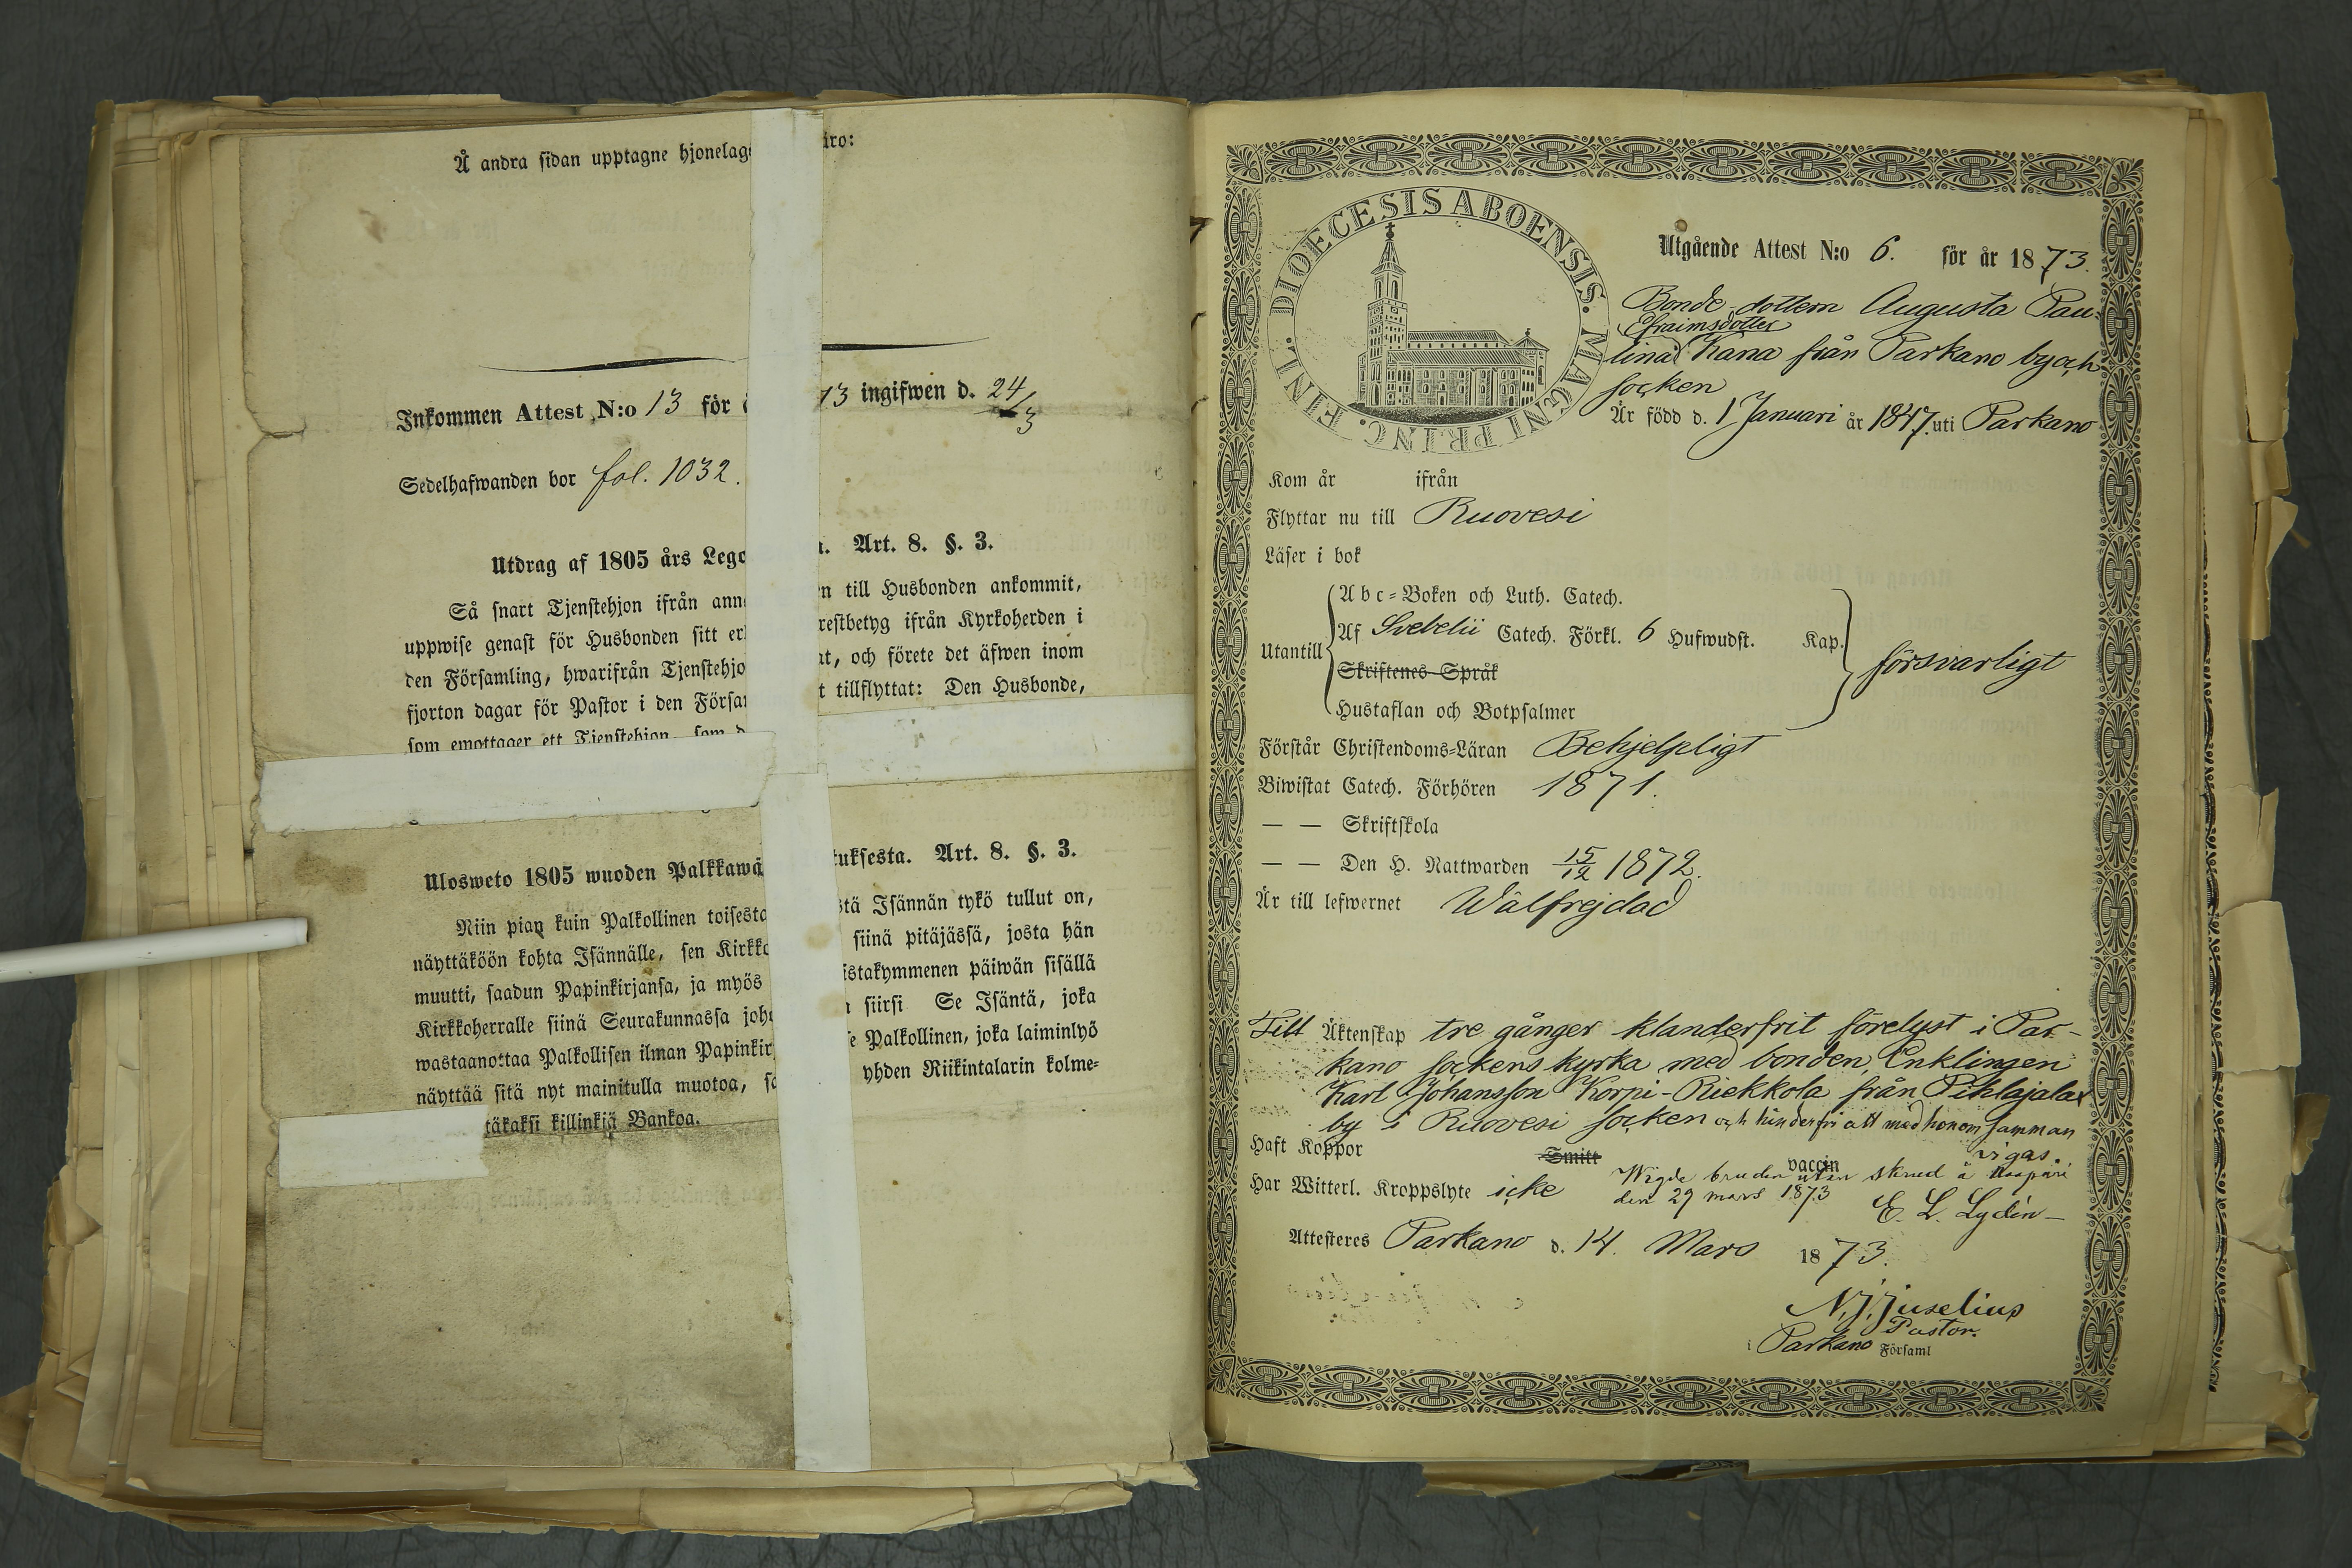 Å andra sidan upptagne hjonelag iro:
Inkommen Attest N:o 13 för å 73 ingifwen d. 24/3
Sedelhafwanden bor fol. 1032.
Utdrag af 1805 års Lego a. Art. 8. §. 3.
Så snart Tjenstehjon ifrån ann n till Husbonden ankommit,
uppwise genast för Husbonden sitt er restbetyg ifrån Kyrkoherden i
den Församling, hwarifrån Tjenstehjo at, och förete det äfwen inom
fjorton dagar för Pastor i den Försa t tillflyttat: Den Husbonde,
som emottager ett Tjenstehjon, som d
Ulosweto 1805 wuoden Palkkawä tuksesta. Art. 8. §. 3.
Niin pian kuin Palkollinen toisesta stä Isännän tykö tullut on,
näyttäköön kohta Isännälle, sen Kirkko siinä pitäjässä, josta hän
muutti, saadun Papinkirjansa, ja myös istakymmenen päiwän sisällä
Kirkkoherralle siinä Seurakunnassa joh siirsi Se Isäntä, joka
wastaanottaa Palkollisen ilman Papinkir e Palkollinen, joka laiminlyö
näyttää sitä nyt mainitulla muotoa, sa yhden Riikintalarin kolme-
täkaksi killinkiä Bankoa.
DIOECESIS ABOENSIS. MAGNI PRINC. FINL.
Utgående Attest N:o 6. för år 1873.
Bonde-dottern Augusta Pau-
Efraimsdotter
lina Kana från Parkano by och
socken
Är född d. 1 Januari år 1847. uti Parkano
Kom år ifrån
Flyttar nu till Ruovesi
Läser i bok
Utantill
Abc-Boken och Luth. Catech.
Af Svebelii Catech. Förkl. 6 Hufwudst. Kap.
Skriftenes Språk
Hustaflan och Botpsalmer
försvarligt
Förstår Christendoms-Läran Behjelpligt
Biwistat Catech. Förhören 1871.
— — Skriftskola
— — Den H. Nattwarden 15/12 1872.
Är till lefwernet Wälfrejdad
Till Äktenskap tre gånger klanderfrit förelyst i Par-
kano sockens kyrka med bonden, Enklingen
Karl Johansson Korpi-Riekkola från Pihlajalax
by i Ruovesi socken och hinderfri att med honom samman
vigas.
Haft Koppor Smitt vaccin
Har Witterl. Kroppslyte icke
Wigde bruden utan skrud å
den 29 mars 1873
E. L. Lydén
Attesteres Parkano d. 14. Mars 1873.
N. J. Juselius
Pastor.
i Parkano Församl